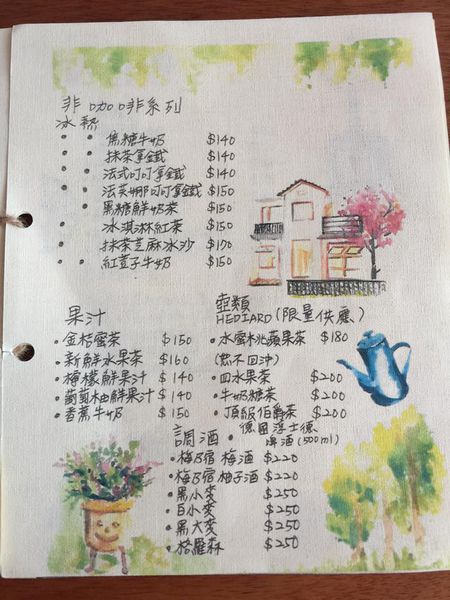 非咖啡系列
冰 熱
• • 焦糖牛奶 $140
• • 抹茶拿鐵 $140
• • 法式叮叮拿鐵 $140
• • 法芙娜叮叮拿鐵 $150
• • 黑糖鮮奶茶 $150
• 冰淇淋紅茶 $150
• 抹茶芝麻冰沙
• • 紅荳子牛奶 $150
果汁
• 金桔蜜茶 $150
• 新鮮水果茶 $160
• 檸檬鮮果汁 $140
• 葡萄柚鮮果汁 $140
• 香蕉牛奶 $150
壺類
HEDIARD(限量供應)
• 水蜜桃蘋果茶 $180
(恕不回沖)
• 四水果茶 $200
• 牛奶糖茶 $200
• 頂級伯爵茶 $200
調酒 • 德國浮士德
啤酒(500ml)
• 梅乃宿 梅酒 $220
• 梅乃宿 柚子酒 $220
• 黑小麥 $250
• 白小麥 $250
• 黑大麥 $250
• 格羅森 $250